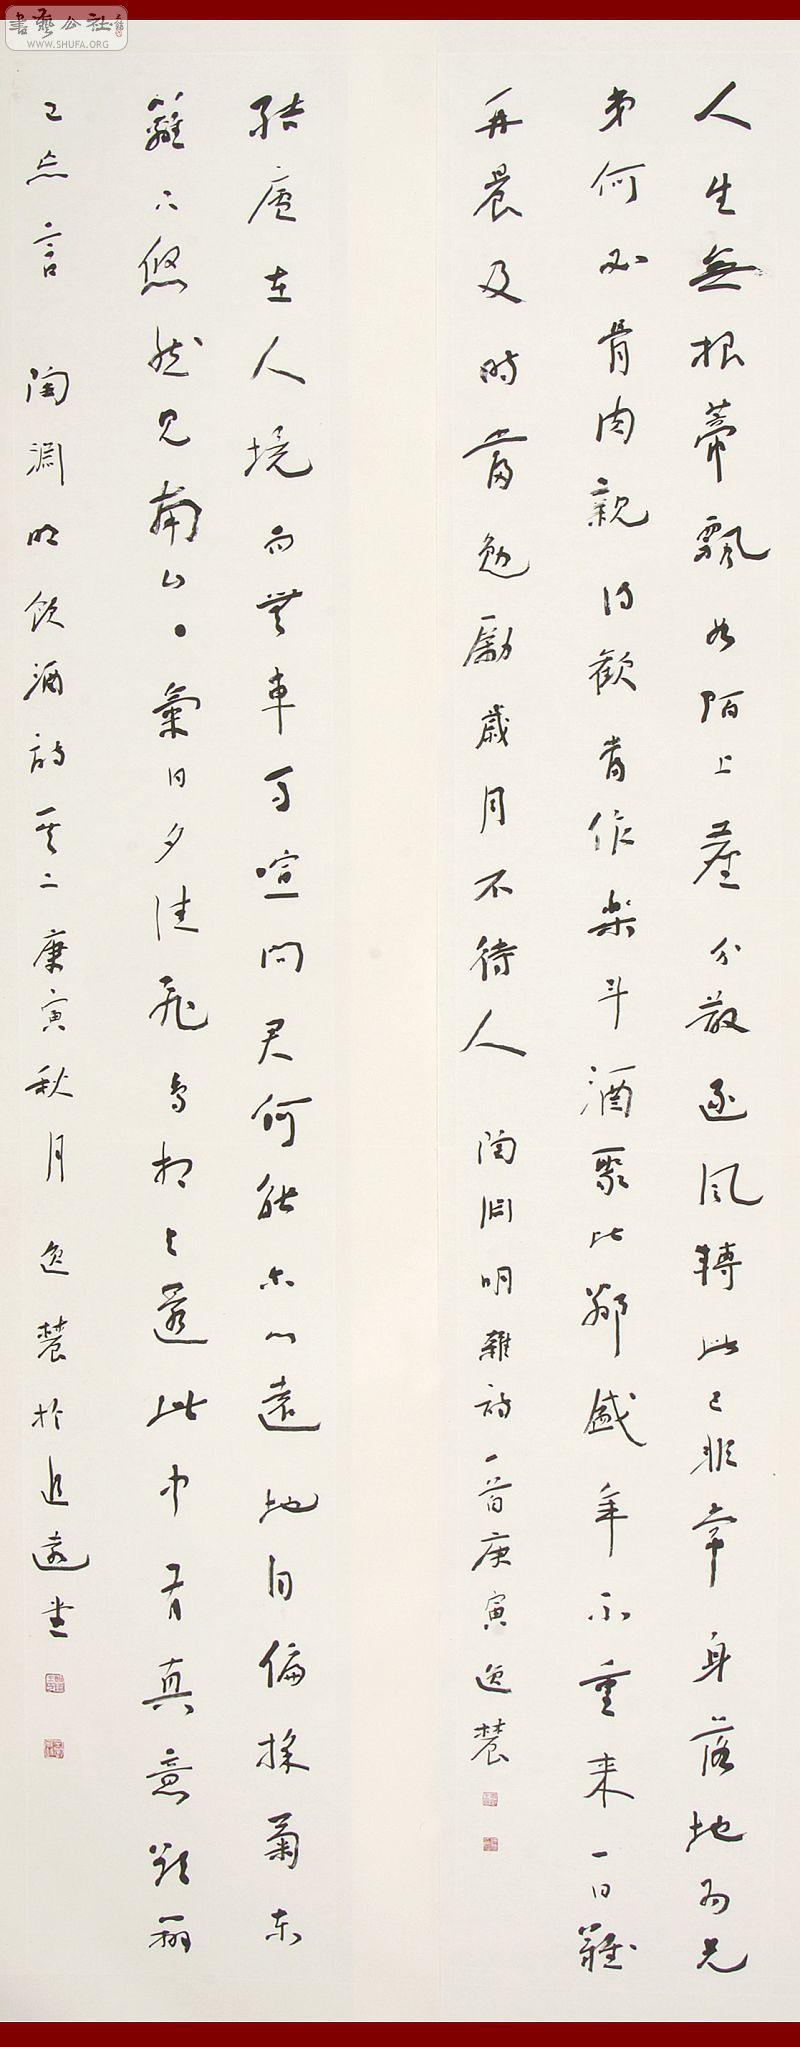 書藝公社
WWW.SHUFA.ORG
人生無根蒂飄如陌上塵分散逐風轉此已非常身落地為兄
弟何必骨肉親得歡當作樂斗酒聚比鄰盛年不重來一日難
再晨及時當勉勵歲月不待人 陶淵明雜詩一首庚寅逸農
結廬在人境而無車馬喧問君何能尔心遠地自偏採菊東
籬下悠然見南山氣日夕佳飛鳥相與還此中有真意欲辨
已忘言 陶淵明飲酒詩其二庚寅秋月 逸農於追遠堂